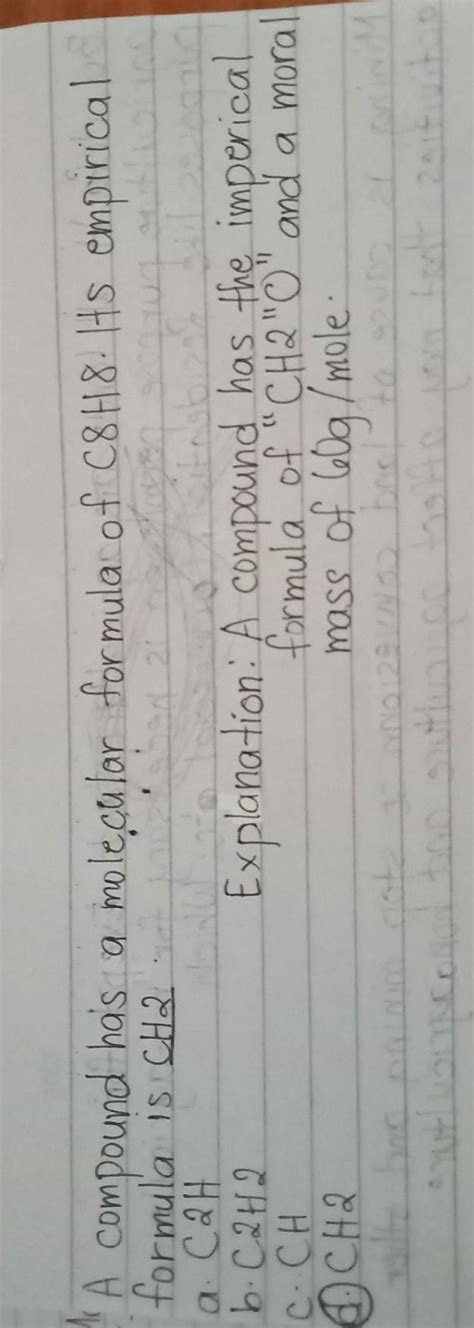 A compound has a molecular formula of C8H8. Its empirical
formula is CH2.
a. C2H
b. C2H2
c. CH
d. CH2
Explanation: A compound has the imperical
formula of "CH2"O" and a moral
mass of 60g/mole.